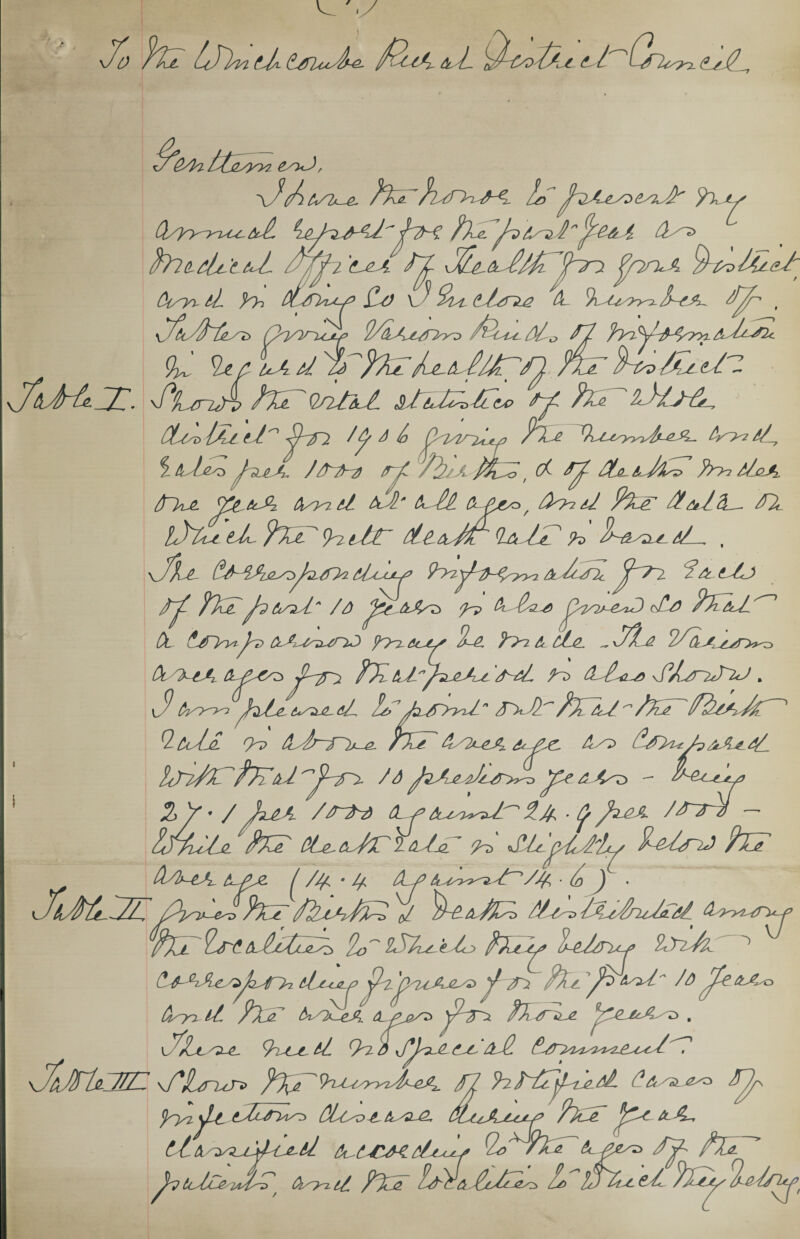 To The Winchcombe Rural District Council,
Gentlemen,
I have the honor to present my
Annual report for the past year as
Medical Officer of Health for your District
and in doing so I Inclose a number of
Tables giving Various kinds of information
in regard to the health of the District
Table I. Shows the Vital statistics of the Whole
district for 1906 giving the number and
rates per 1000 of Births, & of deaths under
one year and at all ages, and the data on
Which the nett death rate is based.
The Corresponding information for each
of the past 10 years is also given so that
a comparison may be made. The Various
averages for that period is also shown.
I am pleased to point out that the Birth
rate is above the average as compared
with that for 10 previous years - being
27.1 per 1000 against 24.9 per 1000 -
While the death rate is slightly below the
average (14.4 against 14.6).
Table II gives the Births & Deaths distributed among
the localities to which they belong with
Corresponding figures for the past 10 years
and the averages for those years.
These need no special comment
Table III Shows the number of notified cases of
infectious disease during the year
classified according to the ages of the
patients, and the localities to which they belong,